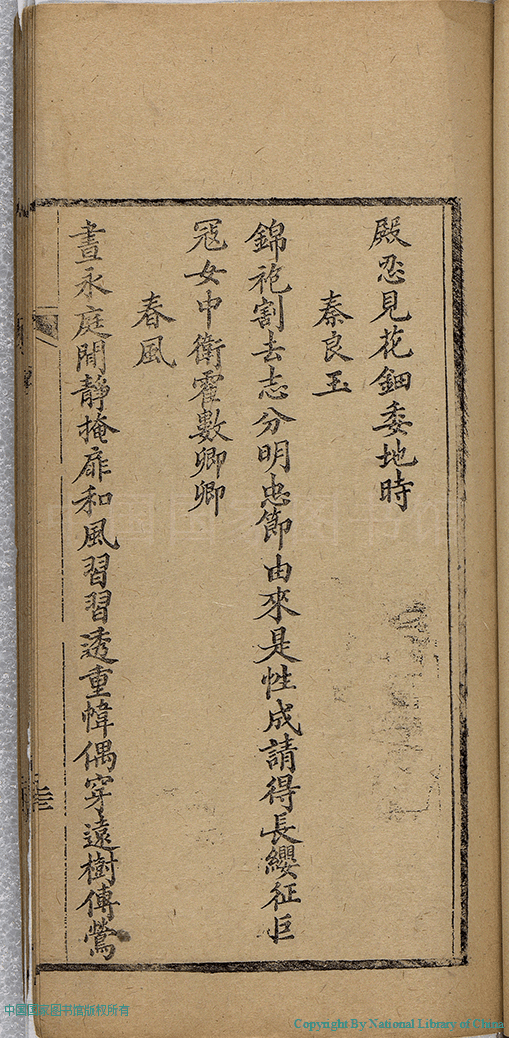 殿忍見花鈿委地時
秦良玉
錦袍割去志分明忠節由來是性成請得長纓征巨
寇女中衛霍數卿卿
春風
晝永庭閒靜掩扉和風習習透重幃偶穿遠樹傳鶯
中国国家图书馆
中国国家图书馆版权所有
Copyright By National Library of China